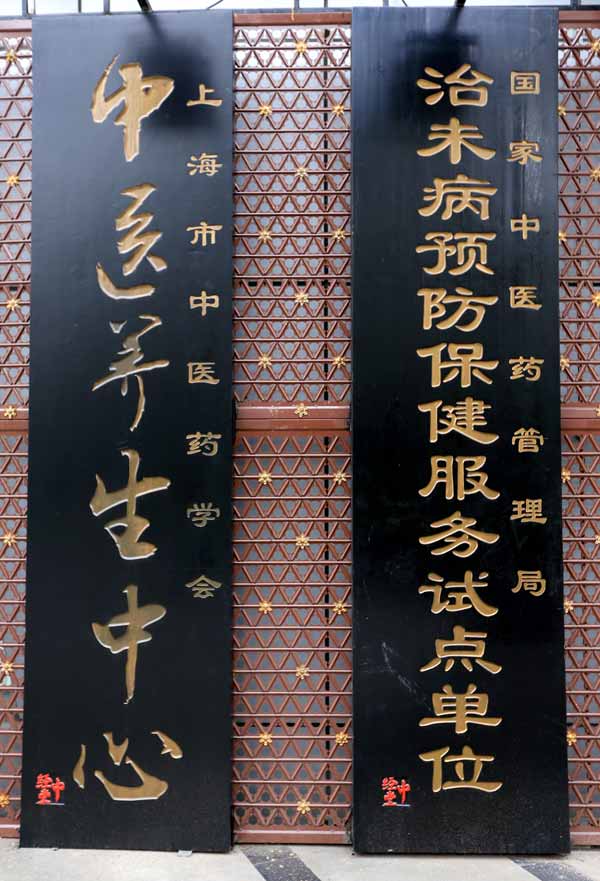 国家中医药管理局
治未病预防保健服务试点单位
上海市中医药学会
中医养生中心